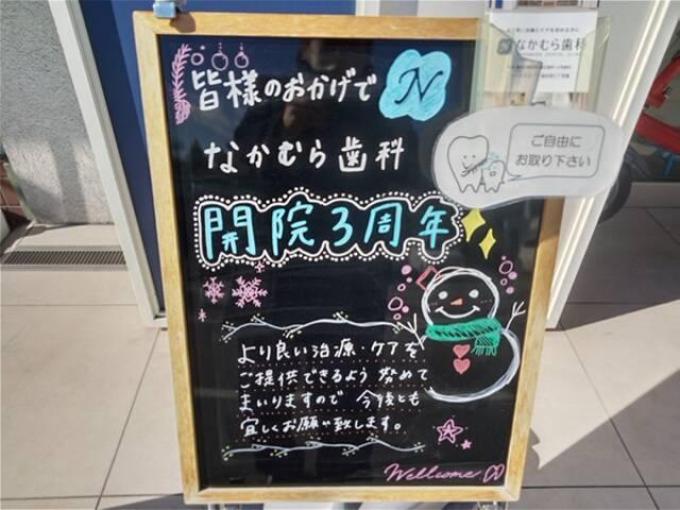 皆様のおかげで
N
なかむら歯科
開院3周年
より良い治療・ケアを
ご提供できるよう 努めて
まいりますので 今後とも
宜しくお願い致します。
Wellcome
なかむら歯科
ご自由に
お取り下さい